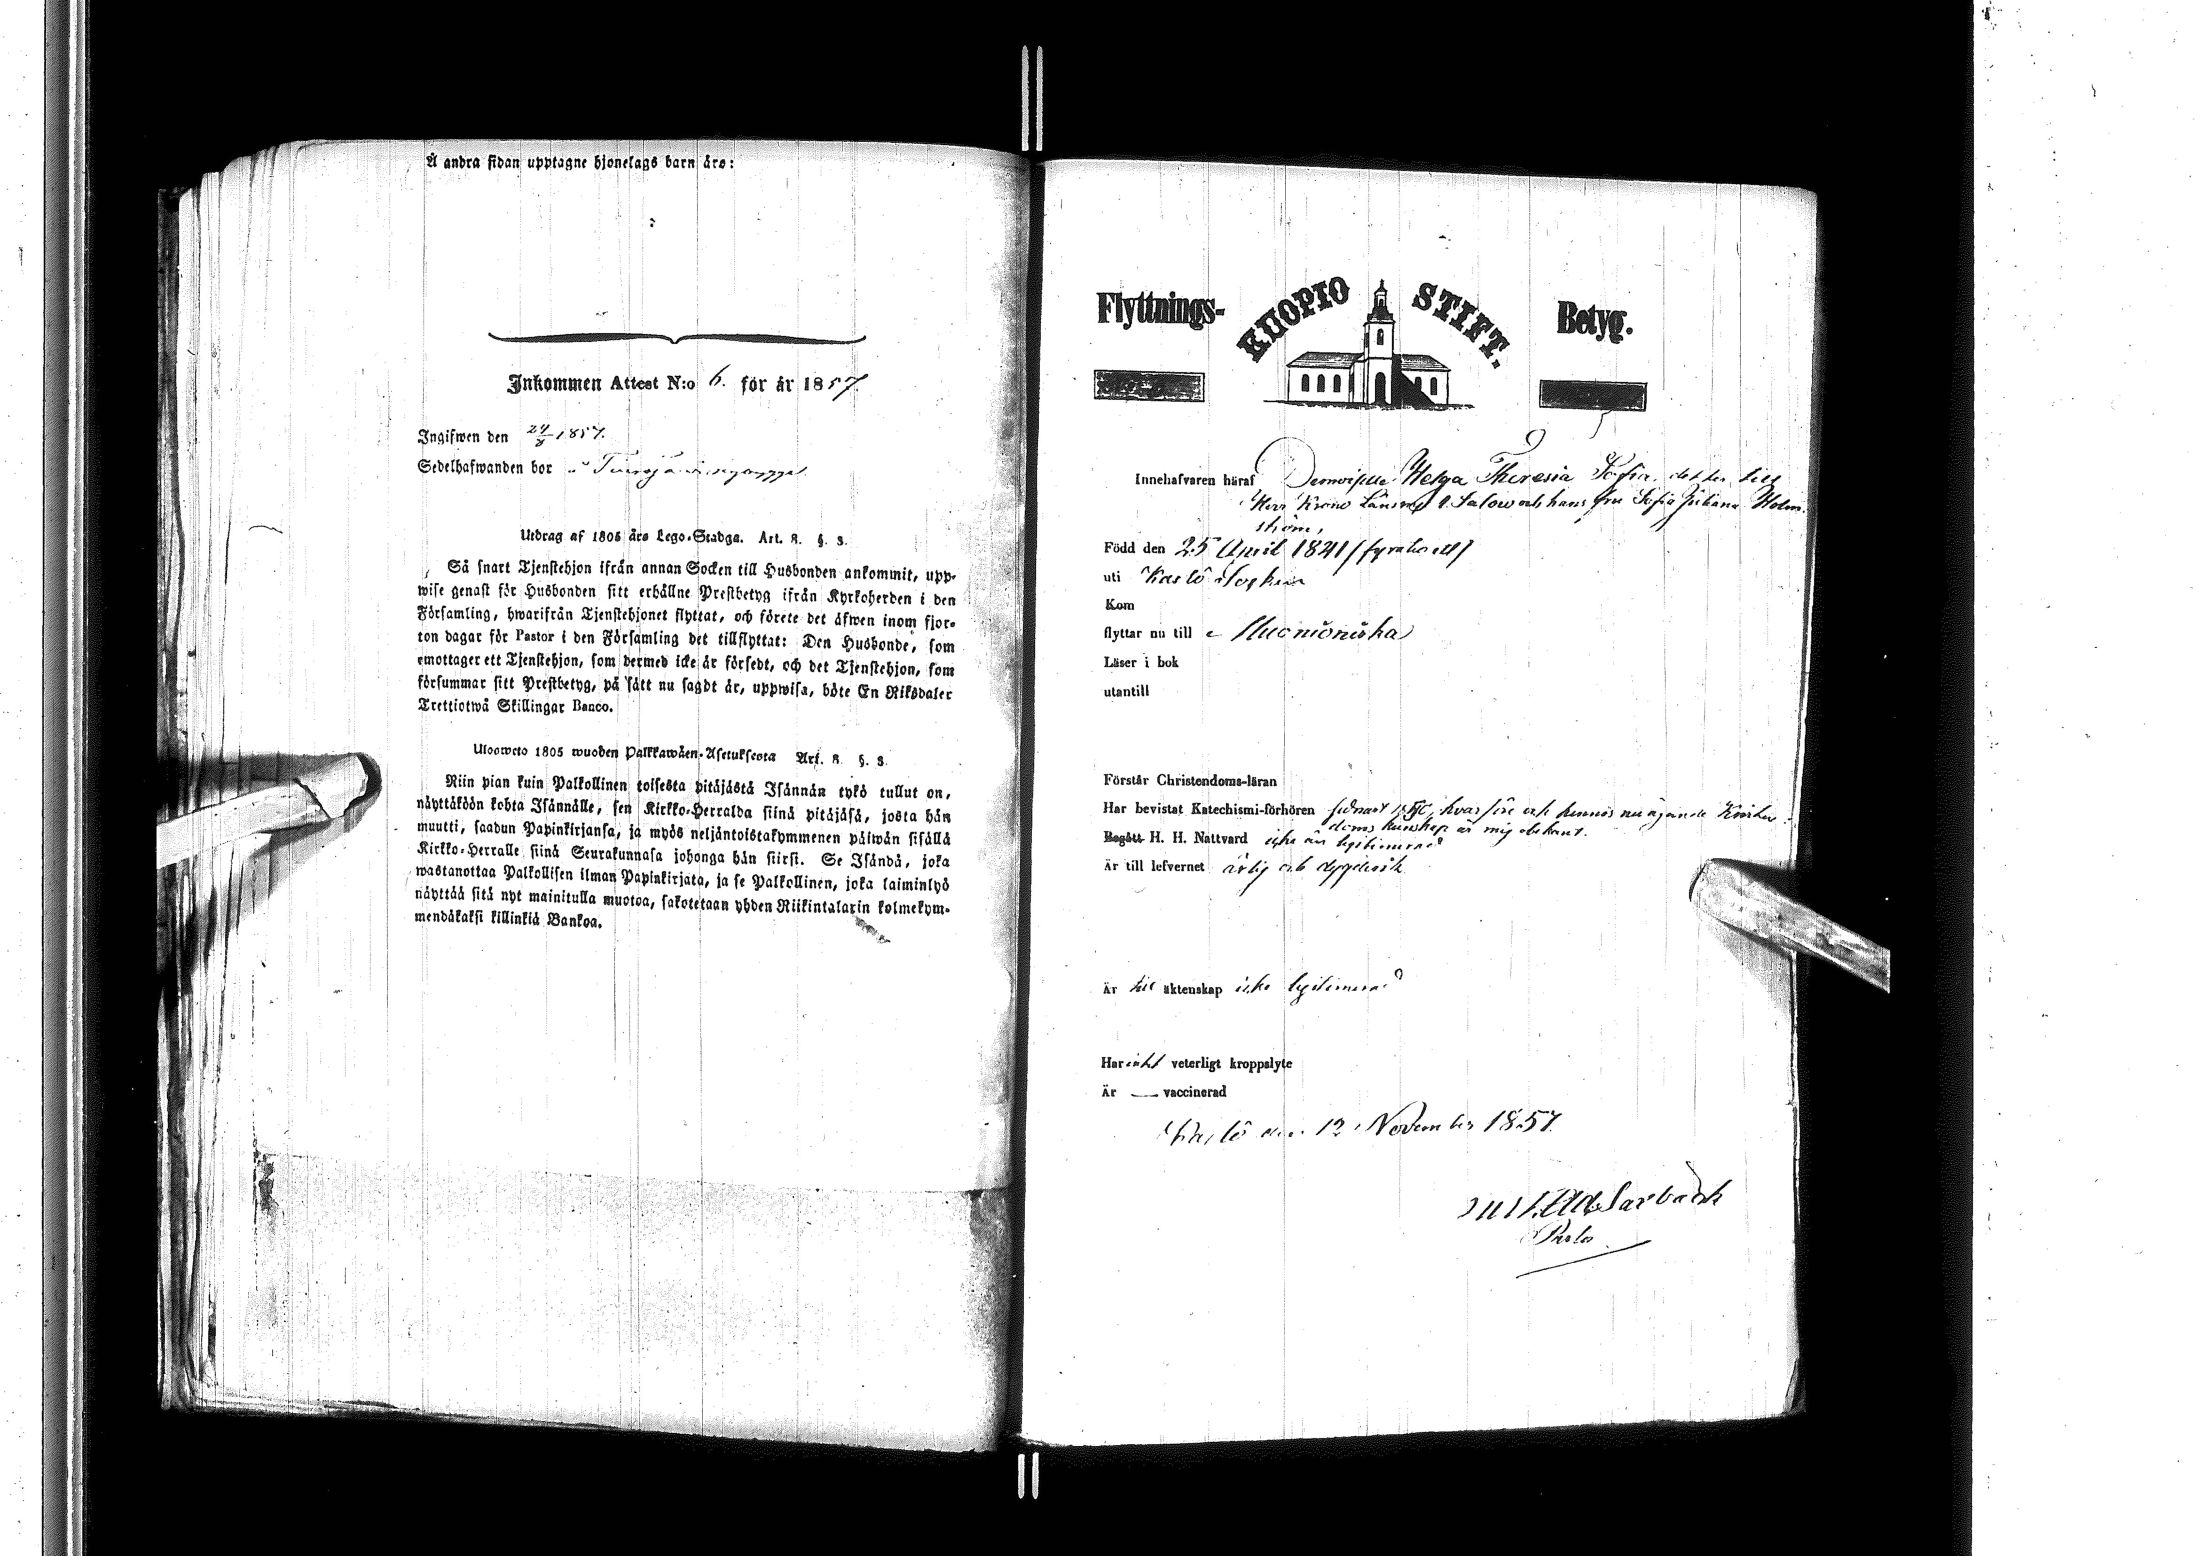 Å andra sidan upptagne hjonelags barn äro:
Inkommen Attest N:o 6. för år 1857.
Ingifwen den 1857.
Sedelhafwanden bor
Utdrag af 1805 års Lego-Stadga. Art. 8. §. 3.
Så snart Tjenstehjon ifrån annan Socken till Husbonden ankommit, upp-
wise genast för Husbonden sitt erhållne Prestbetyg ifrån Kyrkoherden i den
Församling, hwarifrån Tjenstehjonet flyttat, och förete det äfwen inom fjor-
ton dagar för Pastor i den Församling det tillflyttat: Den Husbonde, som
emottager ett Tjenstehjon, som dermed icke är försedt, och det Tjenstehjon, som
försummar sitt Prestbetyg, på sätt nu sagdt är, uppwisa, böte En Riksdaler
Trettiotwå Skillingar Banco.
Ulosweto 1805 wuoden Palkkawäen-Asetuksesta Art. 8. §. 3.
Niin pian kuin Palkollinen toisesta pitäjästä Isännän tykö tullut on,
näyttäköön kohta Isännälle, sen Kirkko-Herralda siinä pitäjäsä, josta hän
muutti, saadun Papinkirjansa, ja myös neljäntoistakymmenen päiwän sisällä
Kirkko-Herralle siinä Seurakunnasa johonga hän siirsi. Se Isändä, joka
wastanottaa Palkollisen ilman Papinkirjata, ja se Palkollinen, joka laiminlyö
näyttää sitä nyt mainitulla muotoa, sakotetaan yhden Riikintalarin kolmekym-
mendäkaksi killinkiä Bankoa.
Flyttnings- KUOPIO STIFT. Betyg.
Innehafvaren häraf Demoiselle Helga Theresia Sofia, dotter till
Herr Krono Länsm. Salow och hans fru Sofia Juliana Holm-
ström,
Född den 25 April 1841 (fyratioett)
uti Karlö Socken
Kom
flyttar nu till Muonioniska
Läser i bok
utantill
Förstår Christendoms-läran
Har bevistat Katechismi-förhören hvarföre och hennes nu ägande Kristen-
doms kunskap är mig obekant.
Begått H. H. Nattvard icke än legitimerad
Är till lefvernet ärlig och dygdesik
Är till äktenskap icke legitimerad
Har intet veterligt kroppslyte
Är — vaccinerad
Karlö den 12 November 1857.